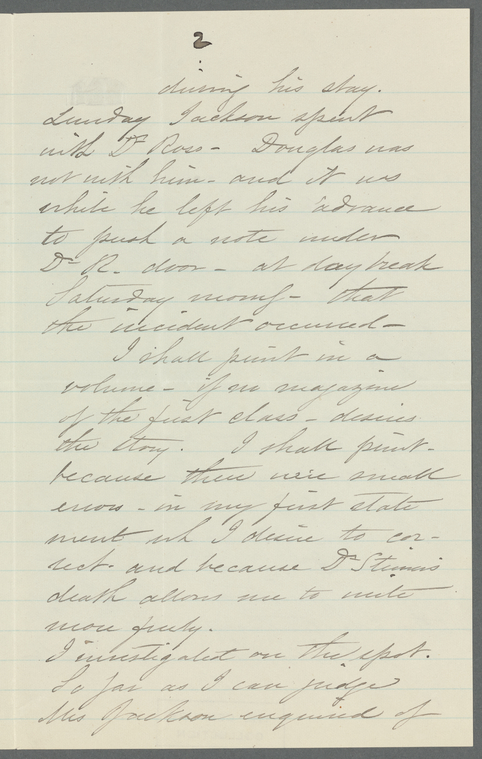 2
during his stay.
Sunday Jackson spent
with Dr Ross - Douglas was
not with him - and it ws
while he left his advance
to push a note under
Dr R. door - at daybreak
Saturday morng - that
the incident occurred -
I shall print in a
volume - if no magazine
of the first class - desires
the story. I shall print -
because there were small
errors - in my first state
ment wh I desire to cor-
rect - and because Dr Stiness
death allows me to write
more freely.
I investigated on the spot.
So far as I can judge
Mrs Jackson enquired of